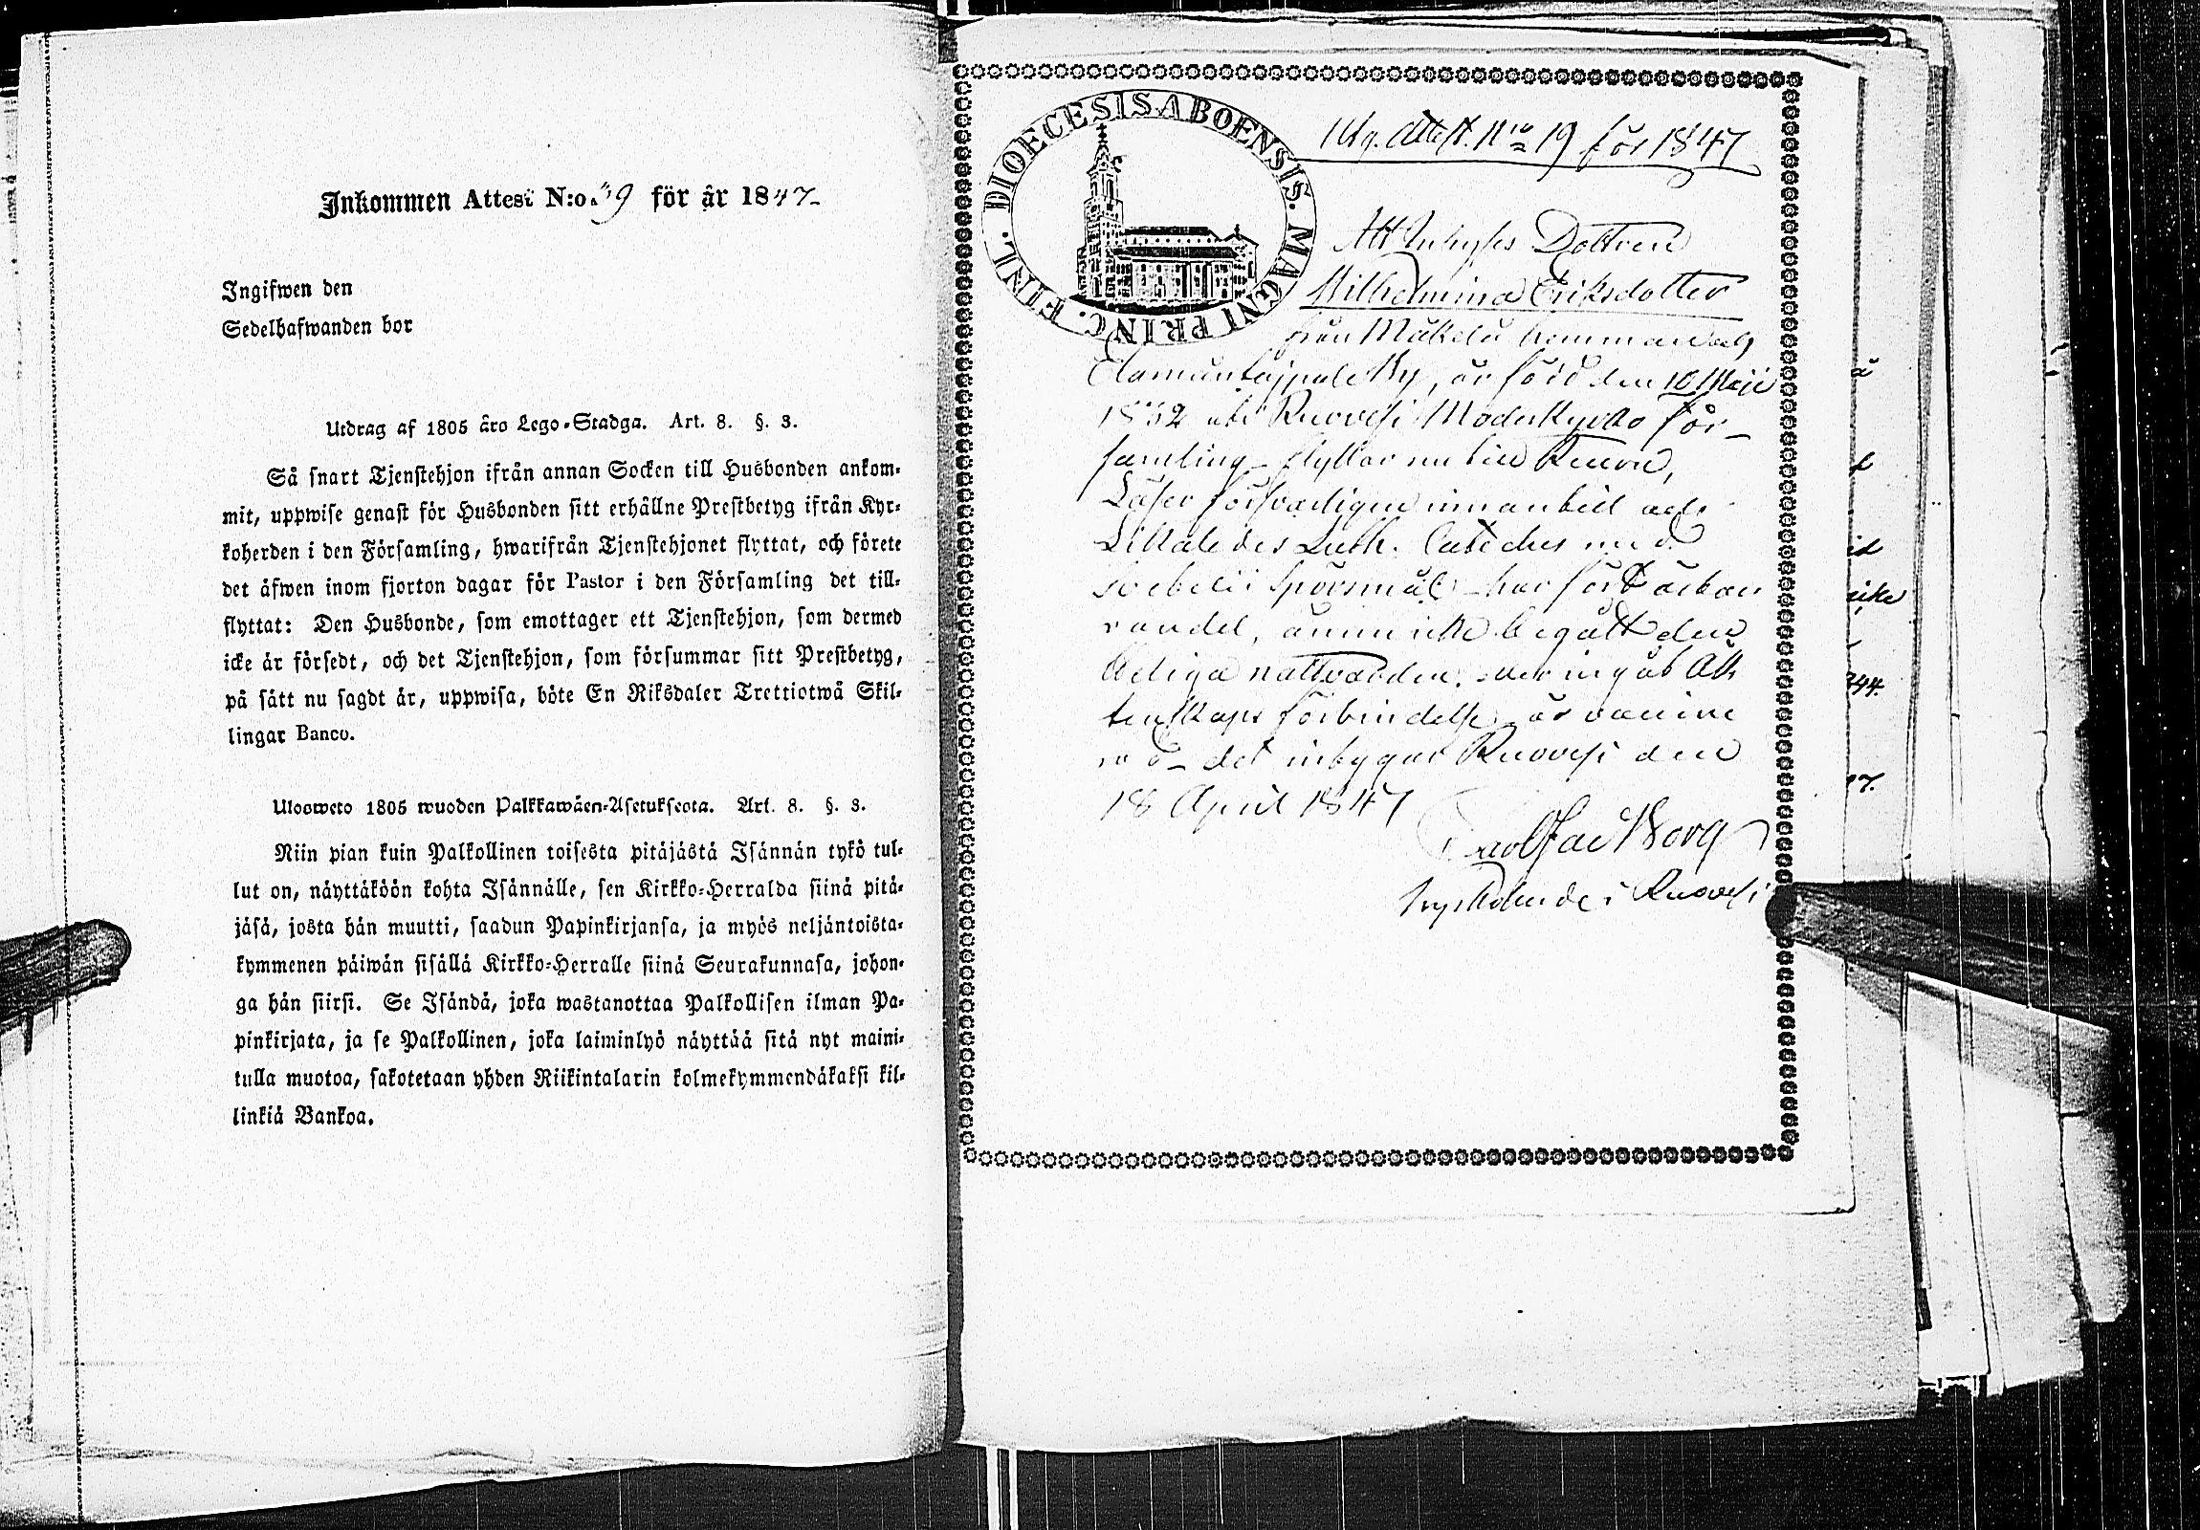 Inkommen Attest N:o 39 för år 1847
Ingifwen den
Sedelhafwanden bor
Utdrag af 1805 års Lego-Stadga. Art. 8. §. 3.
Så snart Tjenstehjon ifrån annan Socken till Husbonden ankom-
mit, uppwise genast för Husbonden sitt erhållne Prestbetyg ifrån Kyr-
koherden i den Församling, hwarifrån Tjenstehjonet flyttat, och förete
det äfwen inom fjorton dagar för Pastor i den Församling det till-
flyttat: Den Husbonde, som emottager ett Tjenstehjon, som dermed
icke är försedt, och det Tjenstehjon, som försummar sitt Prestbetyg,
på sätt nu sagdt är, uppwisa, böte En Riksdaler Trettiotwå Skil-
lingar Banco.
Ulosweto 1805 wuoden Palkkawäen-Asetuksesta. Art. 8. §. 3.
Niin pian kuin Palkollinen toisesta pitäjästä Isännän tykö tul-
lut on, näyttäköön kohta Isännälle, sen Kirkko-Herralda siinä pitä-
jäsä, josta hän muutti, saadun Papinkirjansa, ja myös neljäntoista-
kymmenen päiwän sisällä Kirkko-Herralle siinä Seurakunnasa, johon-
ga hän siirsi. Se Isändä, joka wastanottaa Palkollisen ilman Pa-
pinkirjata, ja se Palkollinen, joka laiminlyö näyttää sitä nyt maini-
tulla muotoa, sakotetaan yhden Riikintalarin kolmekymmendäkaksi kil-
linkiä Bankoa.
DIOECESIS ABOENSIS. MAGNI PRINC. FINL.
Utg. Attest. N:ro 19 för 1847
Att Inhyses Dottren
Wilhelmina Eriksdotter
från Mäkelä hemman och
by, är född den 10 Maji
1832 uti Ruovesi Moderkyrko för-
samling flyttar nu till
Läser försvarligen innantill och
Luth. Cateches med
spörsmål har fört ärbar
vandel, ännu icke begått den
heliga nattvarden, och ingåt äk
tenskaps förbindelse är
det intygar Ruovesi den
18 April 1847
Borg
Kyrkoherde i Ruovesi
344.